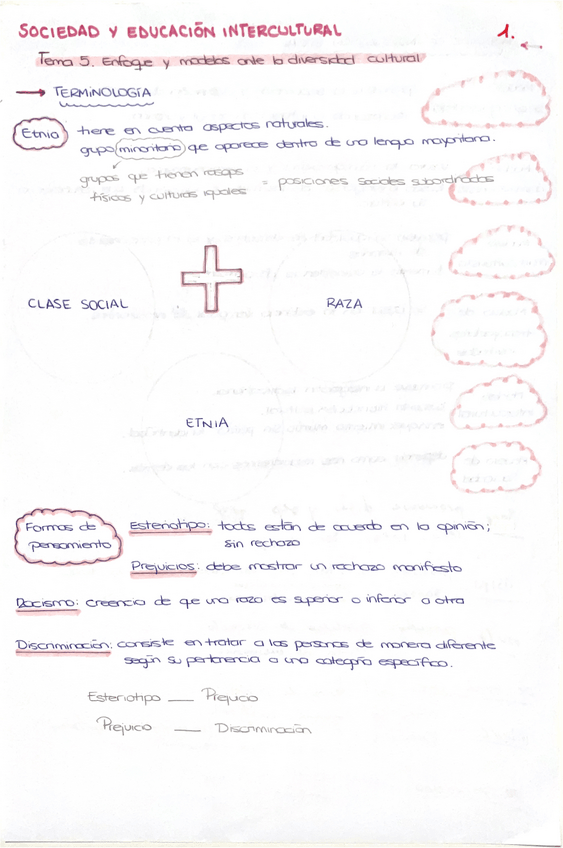 SOCIEDAD Y EDUCACIÓN INTERCULTURAL 1.
Tema 5. Enfoque y modelos ante la diversidad cultural
→ TERMINOLOGÍA
Etnia tiene en cuenta aspectos naturales.
grupo minoritario que aparece dentro de una lengua mayoritaria.
grupos que tienen rasgos
físicos y culturas iguales = posiciones sociales subordinadas
CLASE SOCIAL + RAZA
ETNIA
Formas de pensamiento
Esteriotipo: todos están de acuerdo en la opinión;
sin rechazo
Prejuicios: debe mostrar un rechazo manifiesto
Racismo: creencia de que una raza es superior o inferior a otra
Discriminación: consiste en tratar a las personas de manera diferente
según su pertenencia a una categoría específica.
Esteriotipo — Prejucio
Prejuico — Discriminación